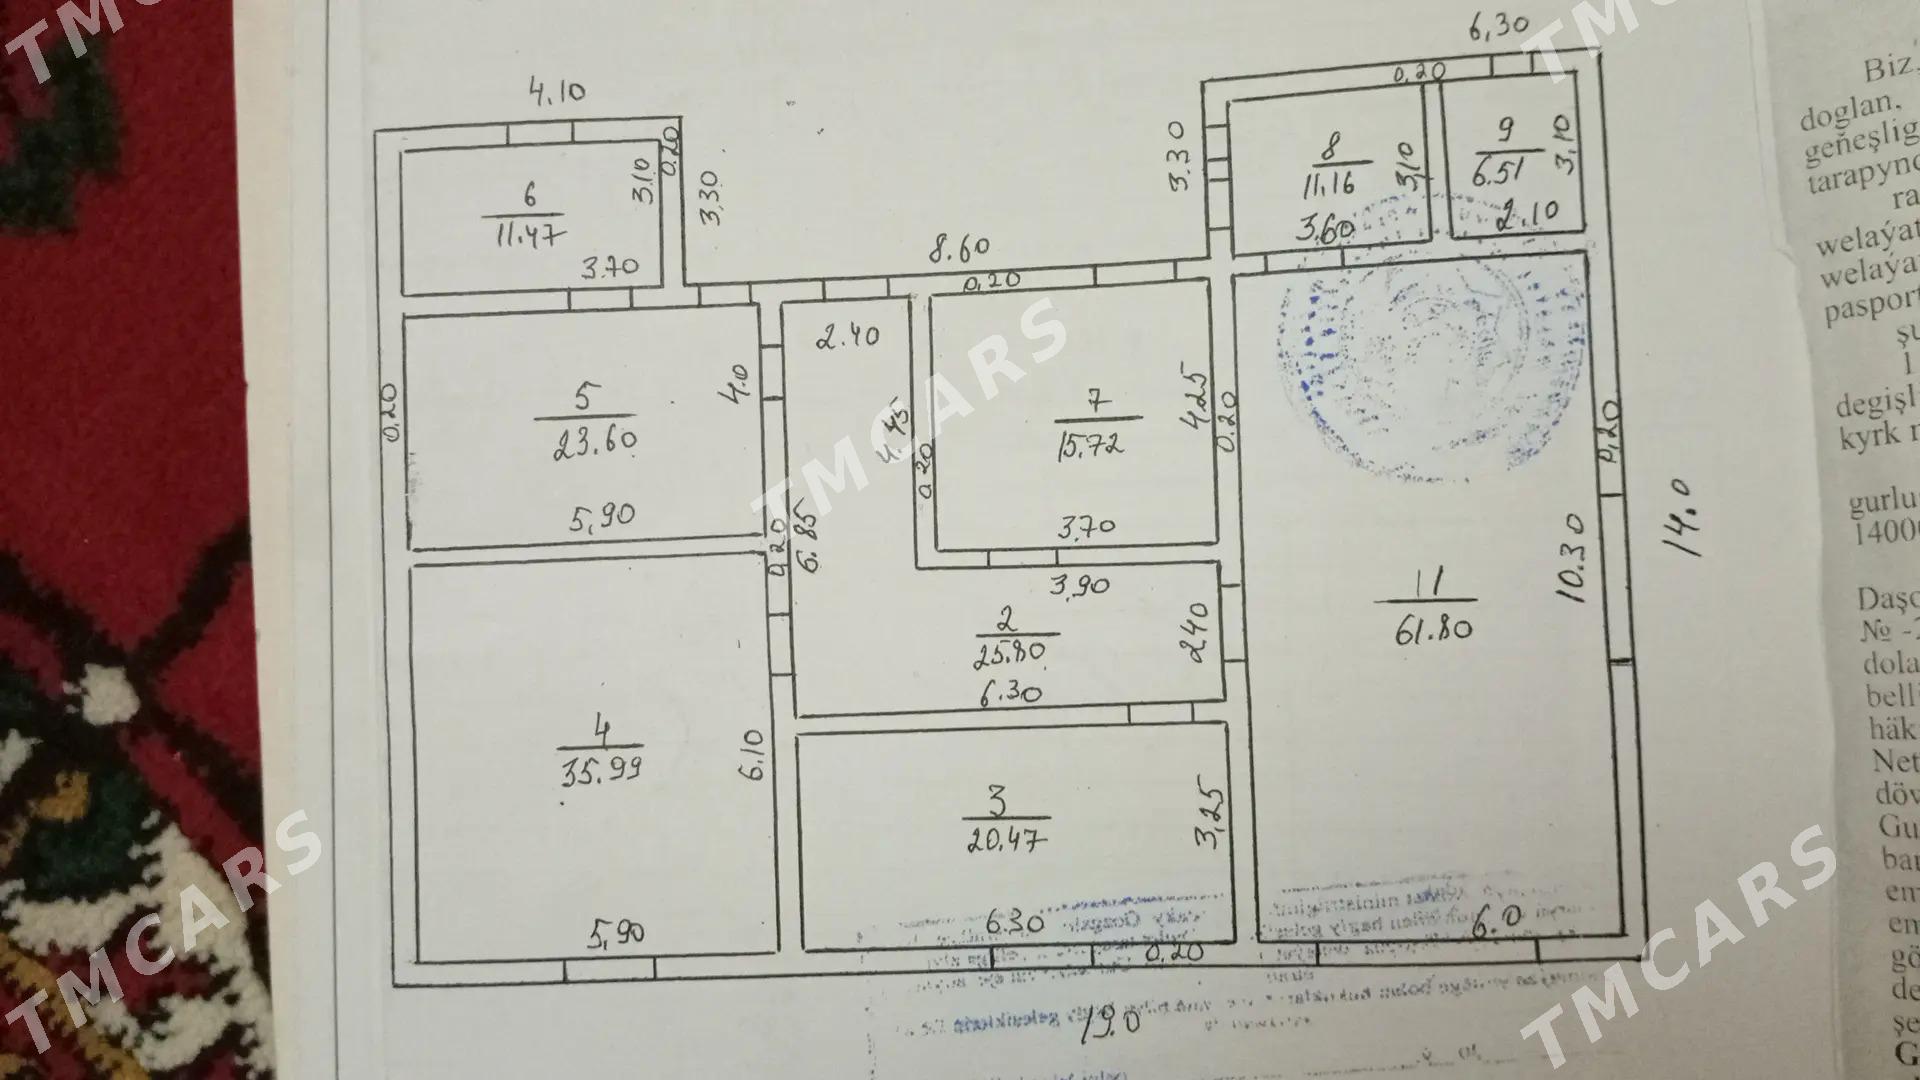 TMCARS
TMCARS
6,30
4.10
0,20
Biz,
doglan,
geňeşlig
tarapync
ra
welaýat
welaýa
pasport
şu
1
degişl
kyrk m
3.30
8
11.16
3,10
3,60
9
6.51
3,10
2.10
6
11.47
3.10
0.20
3,30
3.70
8.60
0,20
2.40
TMCARS
5
23.60
4.0
5,90
0,20
7
15.72
4.25
3.70
4.45
0.20
0.20
0,20
14.0
10.30
11
61.80
gurlu
1400
0.20
6.85
3,90
2
25.80
2.40
6.30
Daşo
№ -
dola
belli
häk
Net
döv
Gu
bar
em
em
gö
de
şe
G
4
35.99
6.10
5,90
3
20.47
3,25
6.30
0,20
6.0
19.0
TMCARS
TMCARS
TMCARS